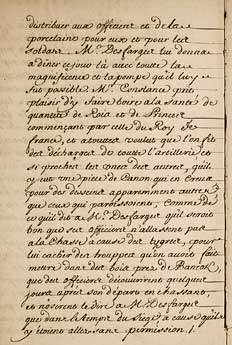 distribuer aux officiers et de la
porcelaine pour eux et pour les
soldats. Mr. Desfarges luy donna
a diner ce jour là avec toute la
magnificence et la pompe qu'il luy
fut possible Mr. Constance prit
plaisir d'y faire boire a la santé de
quantité de Rois et de Princes
commençant par celle du Roy de
france, et a toutes voulut que l'on fit
des décharges de toute l'artillerie et
si proches les unes des autres, qu'il
eust une piece de Canon qui en Creva
pour des desseins apparemment autres
que ceux qui paroissoient, Comme
ce qu'il dit a Mr. Desfarges qu'il seroit
bon que ses officiers n'allassent pas
a la Chasse a cause des tygres, pour
luy cacher des trouppes qu'on avoit fait
mettre dans des bois prez de Bancok,
que des officiers découvrirent quelques
jours apres son départ en chassant,
et n'oserent le dire a Mr. Desfarges
que dans le temps du Siege a cause qu'ils
y étoient allez sans permission /.